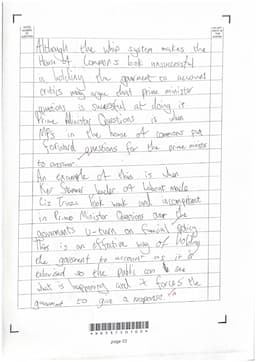 Although the whip system makes the
House of Commons look unsuccessful
in holding the goverment to account
critics may argue that prime minister
questions is sucessful at doing it
Prime Ministry Questions is when
MPs in the house of commons put
forward questions for the prime minister
to answer.
An example of this is when
Keir Starmer leader of Labour made
Liz Truss look weak and incompetent
in Prime Minister Questions over the
governments U-turn on policy
This is an effective way of holding
the goverment to account as it is
so the public can see
what is happening and it forces the
goverment to give a response.
page 03